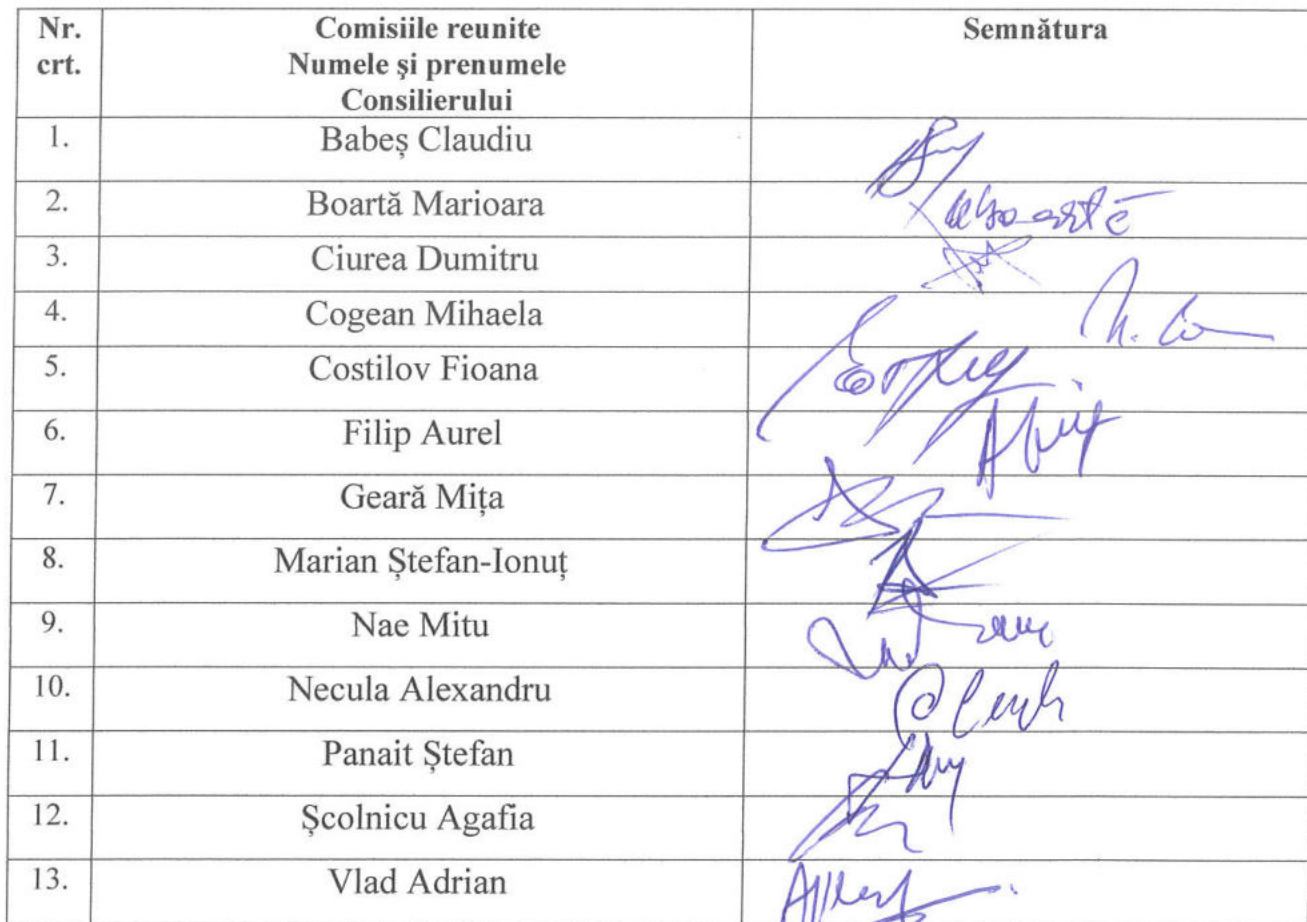 Nr. crt. Comisiile reunite Numele și prenumele Consilierului Semnătura
1. Babeș Claudiu
2. Boartă Marioara
3. Ciurea Dumitru
4. Cogean Mihaela
5. Costilov Fioana
6. Filip Aurel
7. Geară Mița
8. Marian Ștefan-Ionuț
9. Nae Mitu
10. Necula Alexandru
11. Panait Ștefan
12. Școlnicu Agafia
13. Vlad Adrian